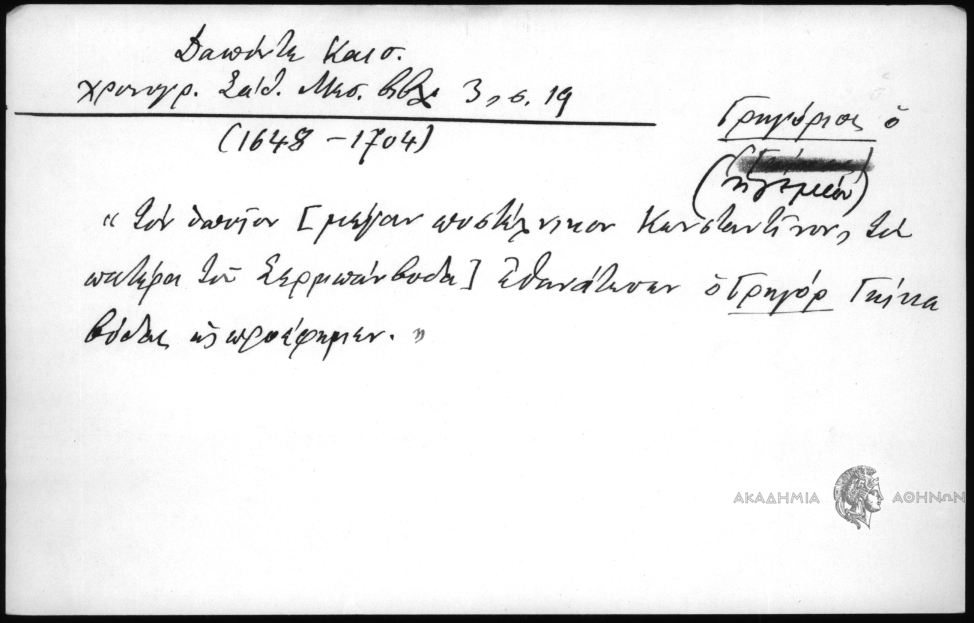 Δαπόντε Καισ.
χρονογρ. Σάθ. Μεσ. Βιβλ 3, σ. 19
(1648 – 1704)
Γρηγόριος ὁ
(ἡγεμών)
"τὸν ὁποῖον [μέγαν ποστέλνικον Κωνσταντῖνον, τὸν
πατέρα τοῦ Σερμπάνβοδα] ἐθανάτωσεν ὁ Γρηγόρ Γκίκα
βόδας ὡς προέφημεν."
ΑΚΑΔΗΜΙΑ ΑΘΗΝΩΝ